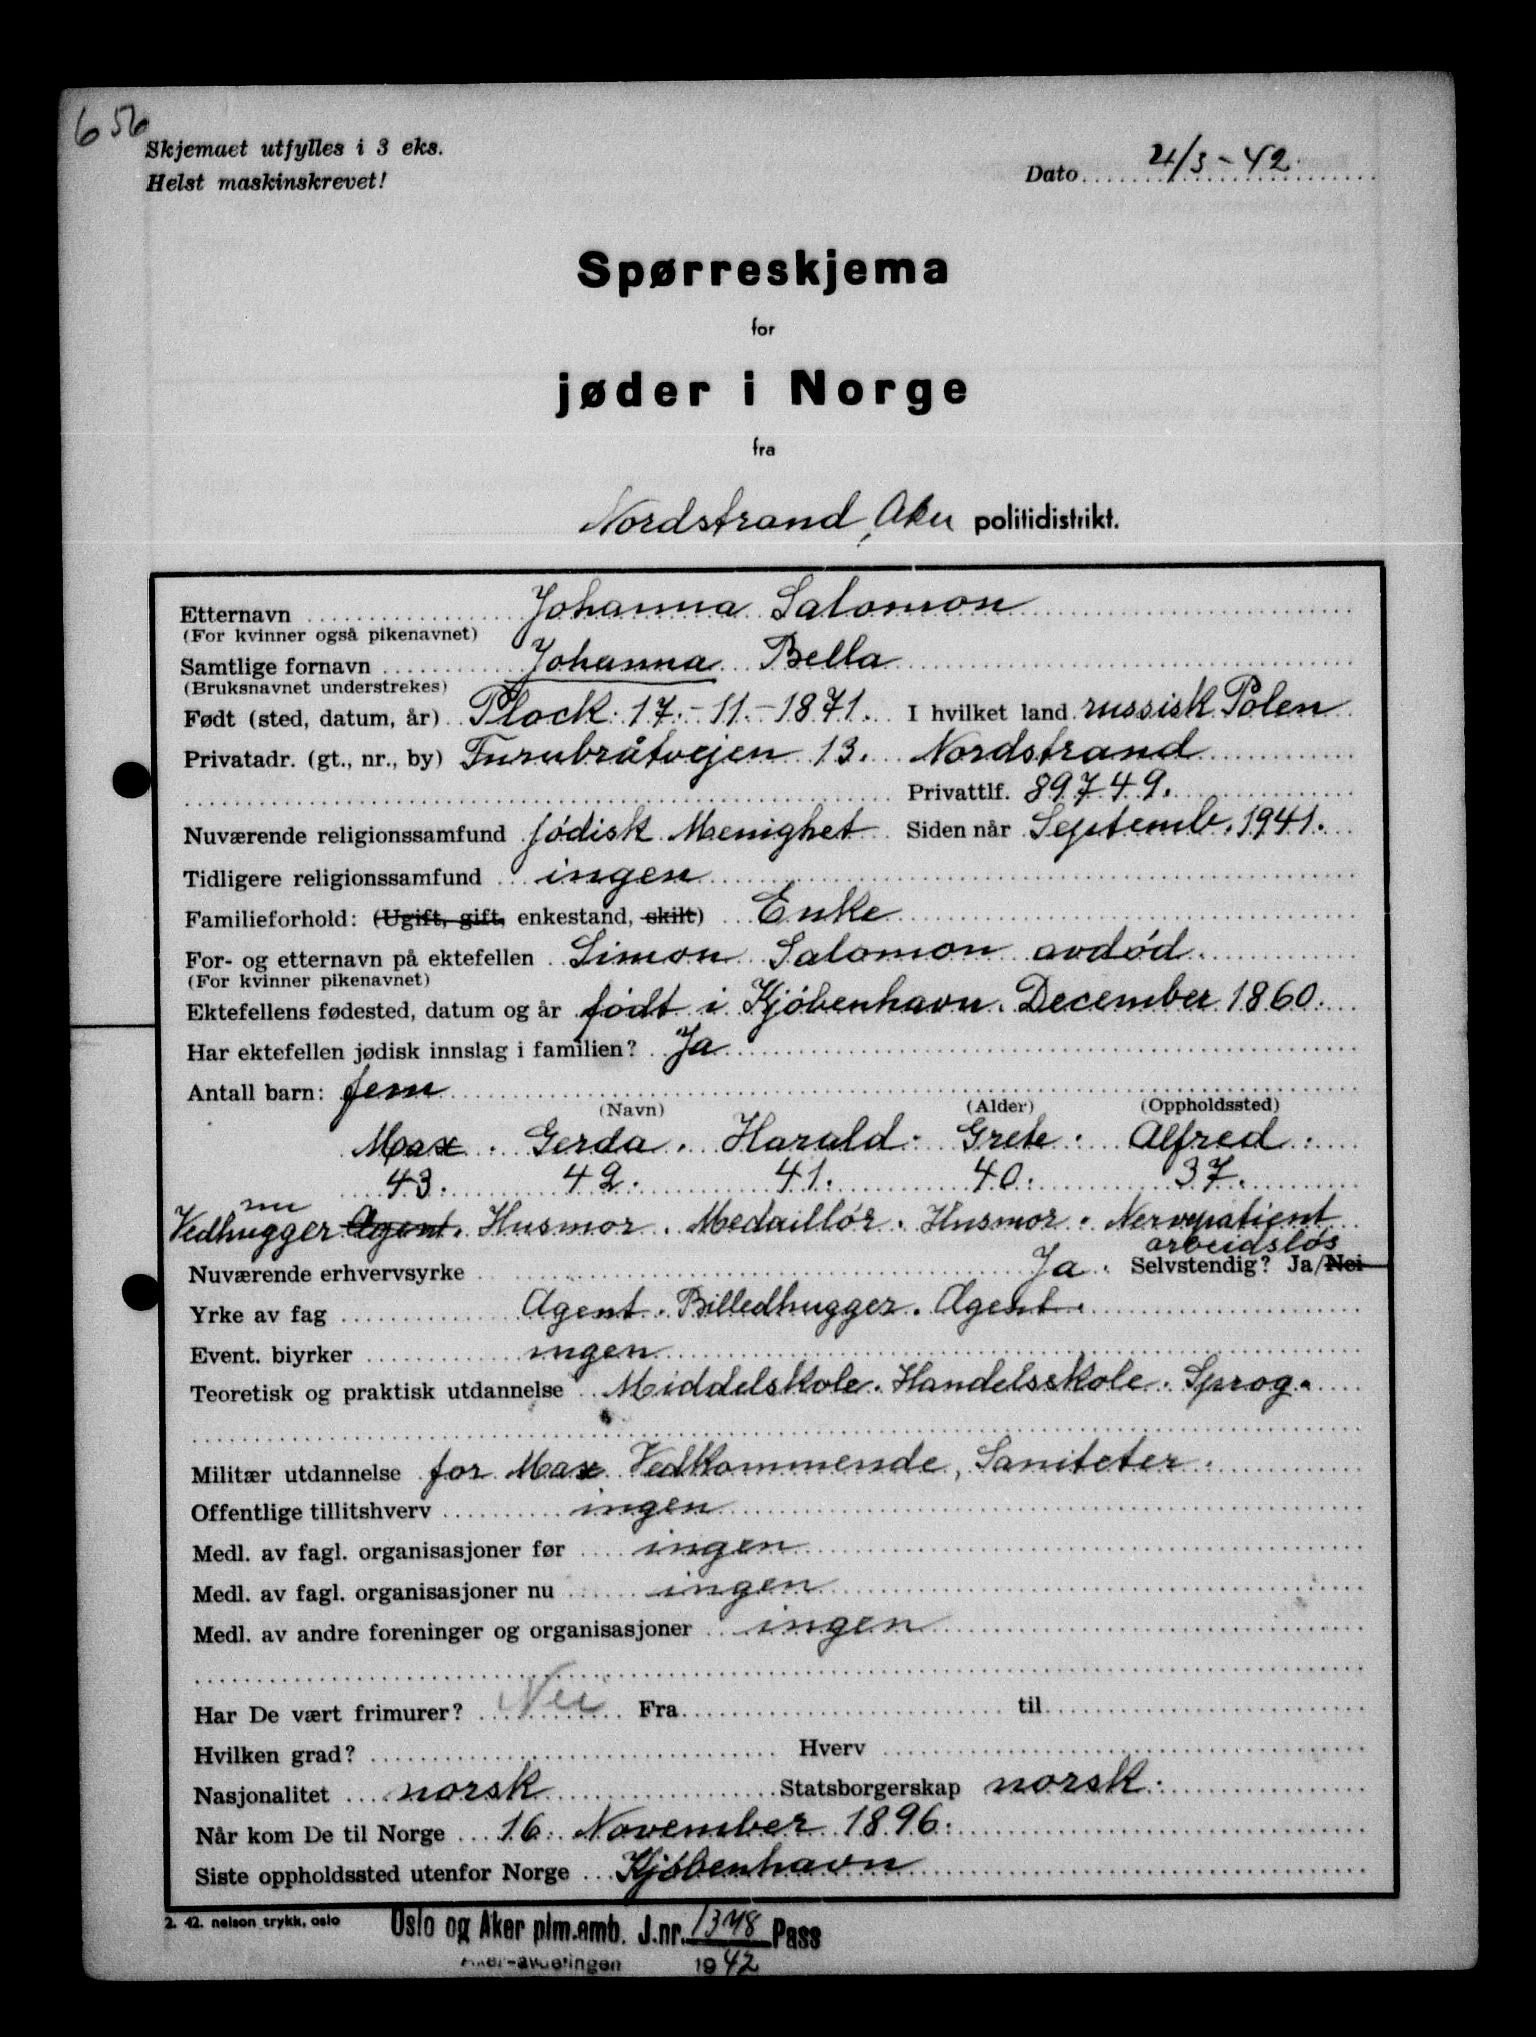 656
Skjemaet utfylles i 3 eks.
Helst maskinskrevet!
Dato 4/3-42
Spørreskjema
for
jøder i Norge
fra
Nordstrand, Aker politidistrikt.
Etternavn Johanna Salomon
(For kvinner også pikenavnet)
Samtlige fornavn Johanna Bella
(Bruksnavnet understrekes)
Født (sted, datum, år) Plock. 17.-11.-1871. I hvilket land russisk Polen
Privatadr. (gt., nr., by) Furubråtvejen 13. Nordstrand
Privattlf. 89749.
Nuværende religionssamfund jødisk Menighet Siden når Septemb. 1941.
Tidligere religionssamfund ingen
Familieforhold: (Ugift, gift, enkestand, skilt) Enke
For- og etternavn på ektefellen Simon Salomon avdød.
(For kvinner pikenavnet)
Ektefellens fødested, datum og år født i Kjøbenhavn. December 1860.
Har ektefellen jødisk innslag i familien? Ja
Antall barn: fem
(Navn) (Alder) (Oppholdssted)
Max. Gerda. Harald. Grete. Alfred.
43. 42. 41. 40. 37.
nu
Vedhugger Agent. Husmor. Medaillör. Husmor. Nervepatient
arbeidsløs
Nuværende erhvervsyrke Ja. Selvstendig? Ja/Nei
Yrke av fag Agent. Billedhugger. Agent.
Event. biyrker ingen
Teoretisk og praktisk utdannelse Middelskole. Handelsskole. Sprog.
Militær utdannelse for Max Vedkommende, Saniteter.
Offentlige tillitshverv ingen
Medl. av fagl. organisasjoner før ingen
Medl. av fagl. organisasjoner nu ingen
Medl. av andre foreninger og organisasjoner ingen
Har De vært frimurer? Nei Fra til
Hvilken grad? Hverv
Nasjonalitet norsk Statsborgerskap norsk.
Når kom De til Norge 16. November 1896.
Siste oppholdssted utenfor Norge Kjøbenhavn
2. 42. nelson trykk, oslo
Oslo og Aker plm.emb. J.nr. 1348 Pass
Aker-avdelingen 1942